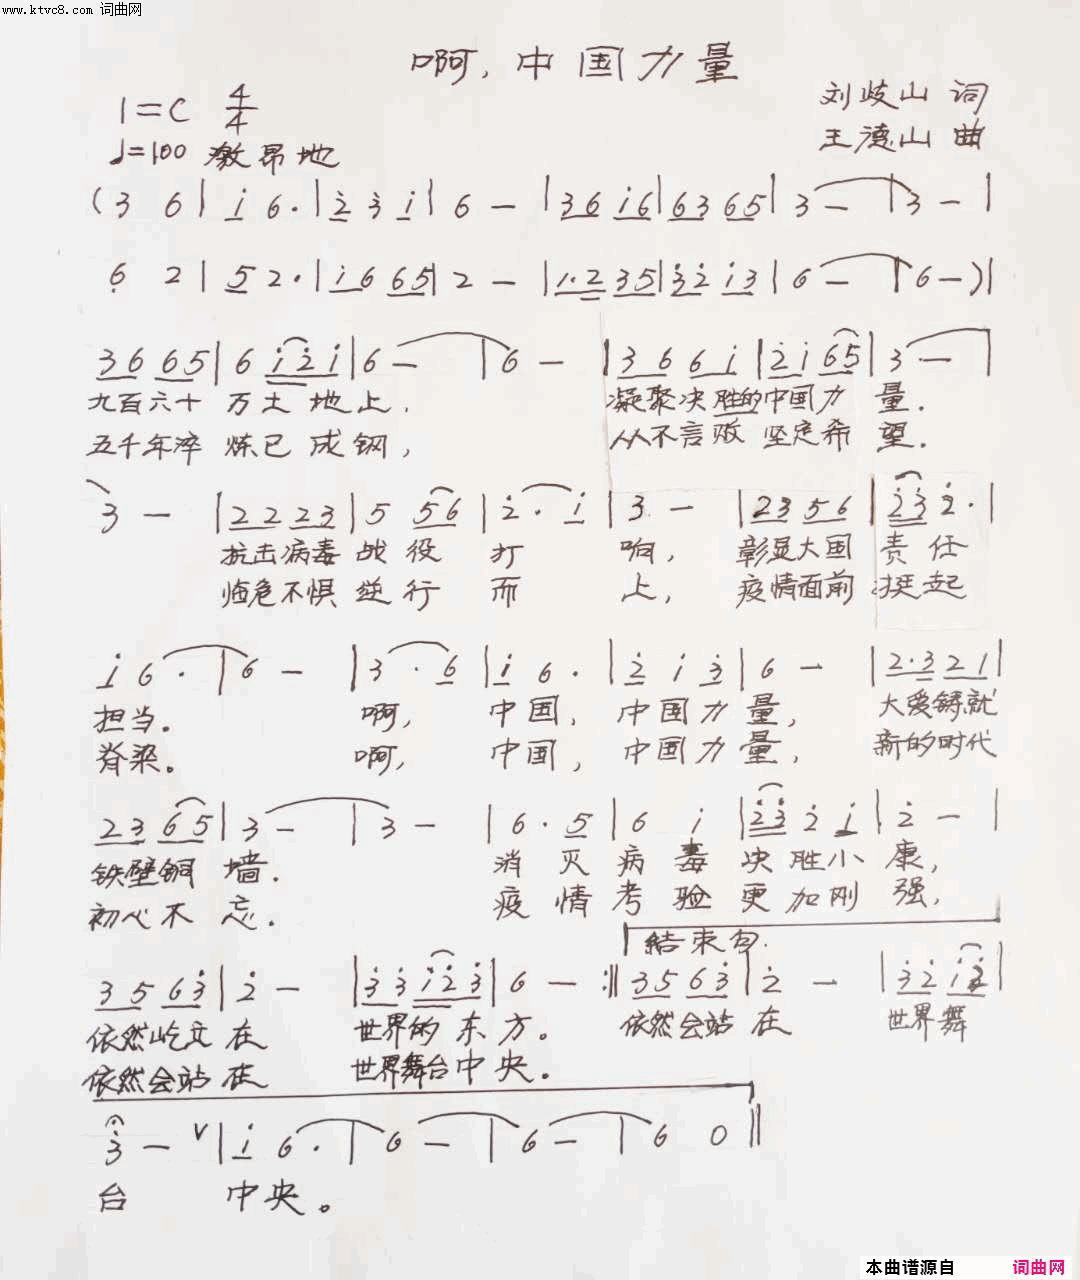 www.ktvc8.com 词曲网
啊,中国力量
1=C 4/4
刘歧山 词
♩=100 激昂地
王德山 曲
(3 6 | i 6· | 2 3 i | 6 — | 36 i6 | 63 65 | 3 — | 3 — |
6 2 | 5 2· | i6 65 | 2 — | 1·2 35 | 32 i3 | 6 — | 6 —) |
36 65 | 6 i2i | 6 — | 6 — | 36 6i | 2i 65 | 3 — |
九百六十 万土地上. 凝聚决胜的中国力 量.
五千年淬 炼已成钢, 从不言败 坚定希 望.
3 — | 22 23 | 5 56 | 2· i | 3 — | 23 56 | 23 2· |
抗击病毒 战役 打 响, 彰显大国 责任
临危不惧 逆行 而 上, 疫情面前 挺起
i 6· | 6 — | 3· 6 | i 6· | 2 i 3 | 6 — | 2·3 21 |
担当. 啊, 中国, 中国力量, 大爱铸就
脊梁. 啊, 中国, 中国力量, 新的时代
23 65 | 3 — | 3 — | 6· 5 | 6 i | 23 2 i | 2 — |
铁壁铜 墙. 消灭病毒 决胜小 康,
初心不 忘. 疫情考验 更加刚 强,
结束句.
35 63 | 2 — | 33 i23 | 6 — :|| 35 63 | 2 — | 32 i2 |
依然屹立 在 世界的东方。 依然会站 在 世界舞
依然会站 在 世界舞台中央。
3 — V | i 6· | 6 — | 6 — | 6 0 ||
台 中央。
本曲谱源自 词曲网